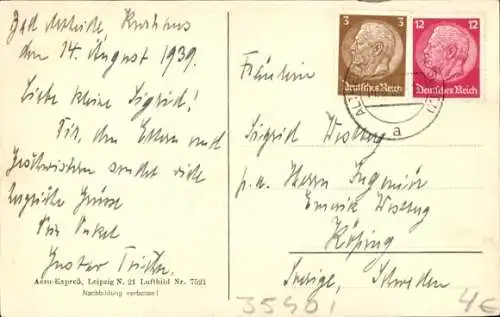 Bad Heide, Kurhaus
den 14. August 1939.
Liebe kleine Sigrid!
Dir, den Eltern und
Geschwistern sendet viele
herzliche Grüsse
Dein Onkel
Gustav
Aero-Expreß, Leipzig N. 21 Luftbild Nr. 7521
Nachbildung verboten!
3
Deutsches Reich
12
Deutsches Reich
a
Fräulein
Sigrid Westberg
p.a. Herrn Ingeniör
Westberg
Köping
Sverige, Schweden
35401
4€